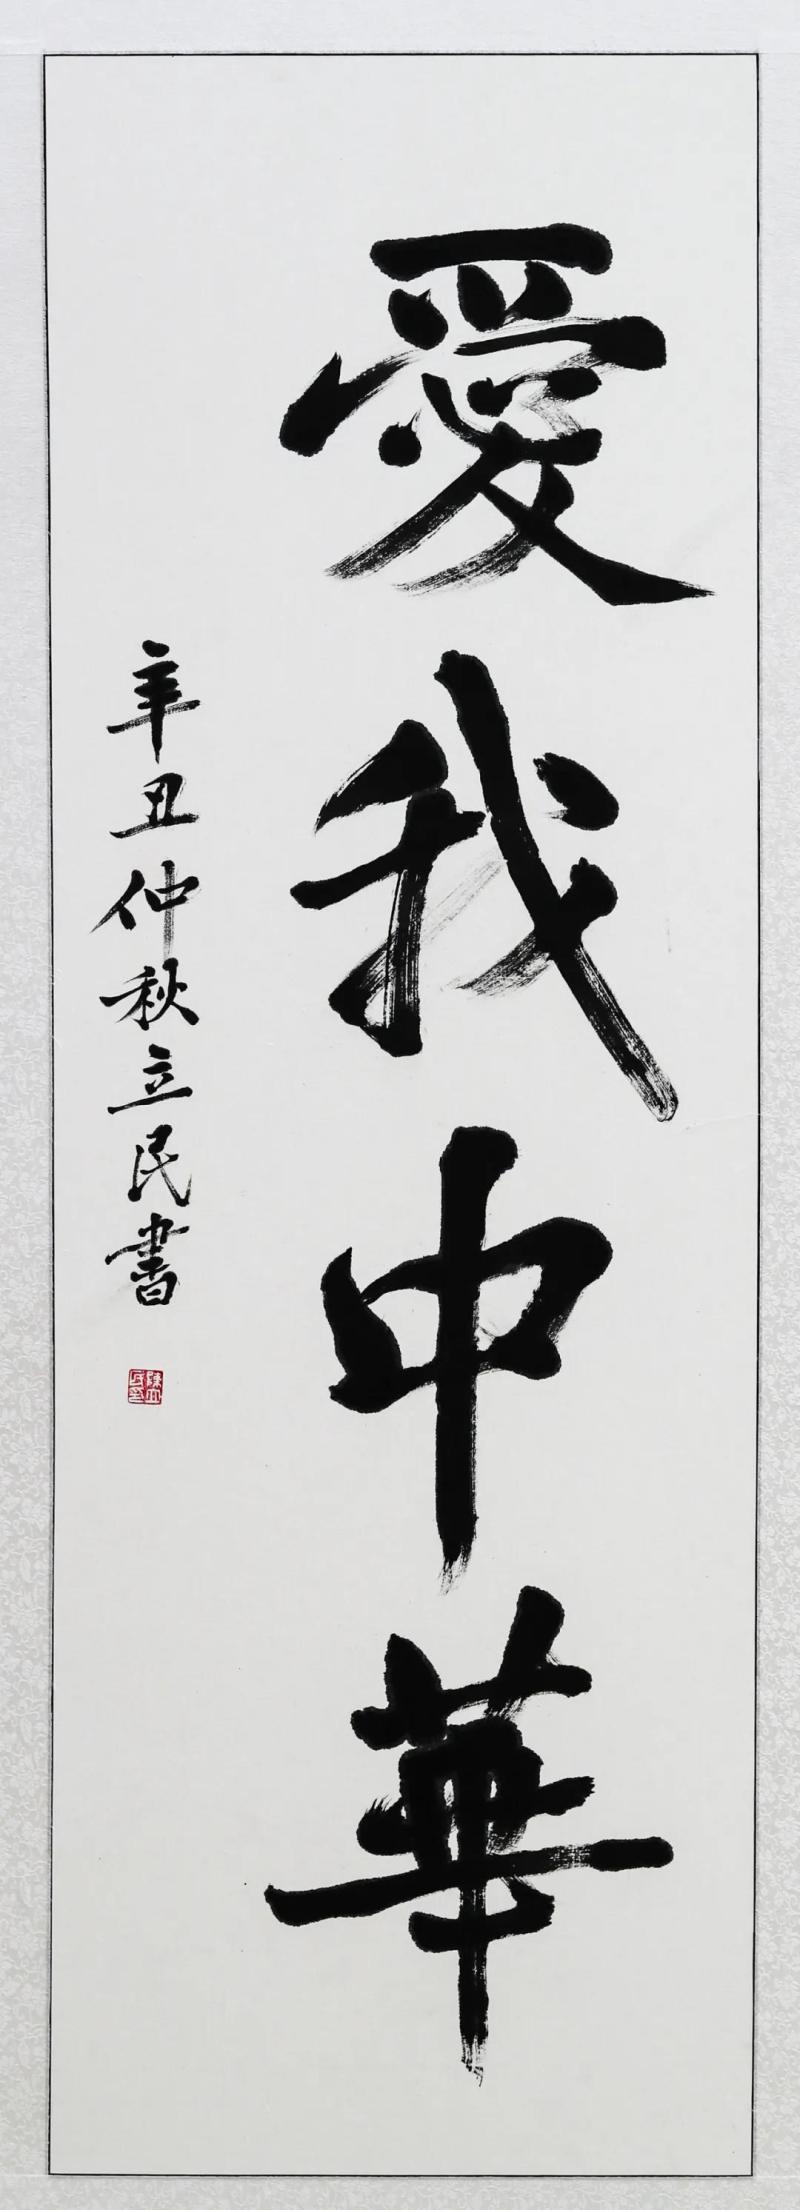 愛我中華
辛丑仲秋立民書